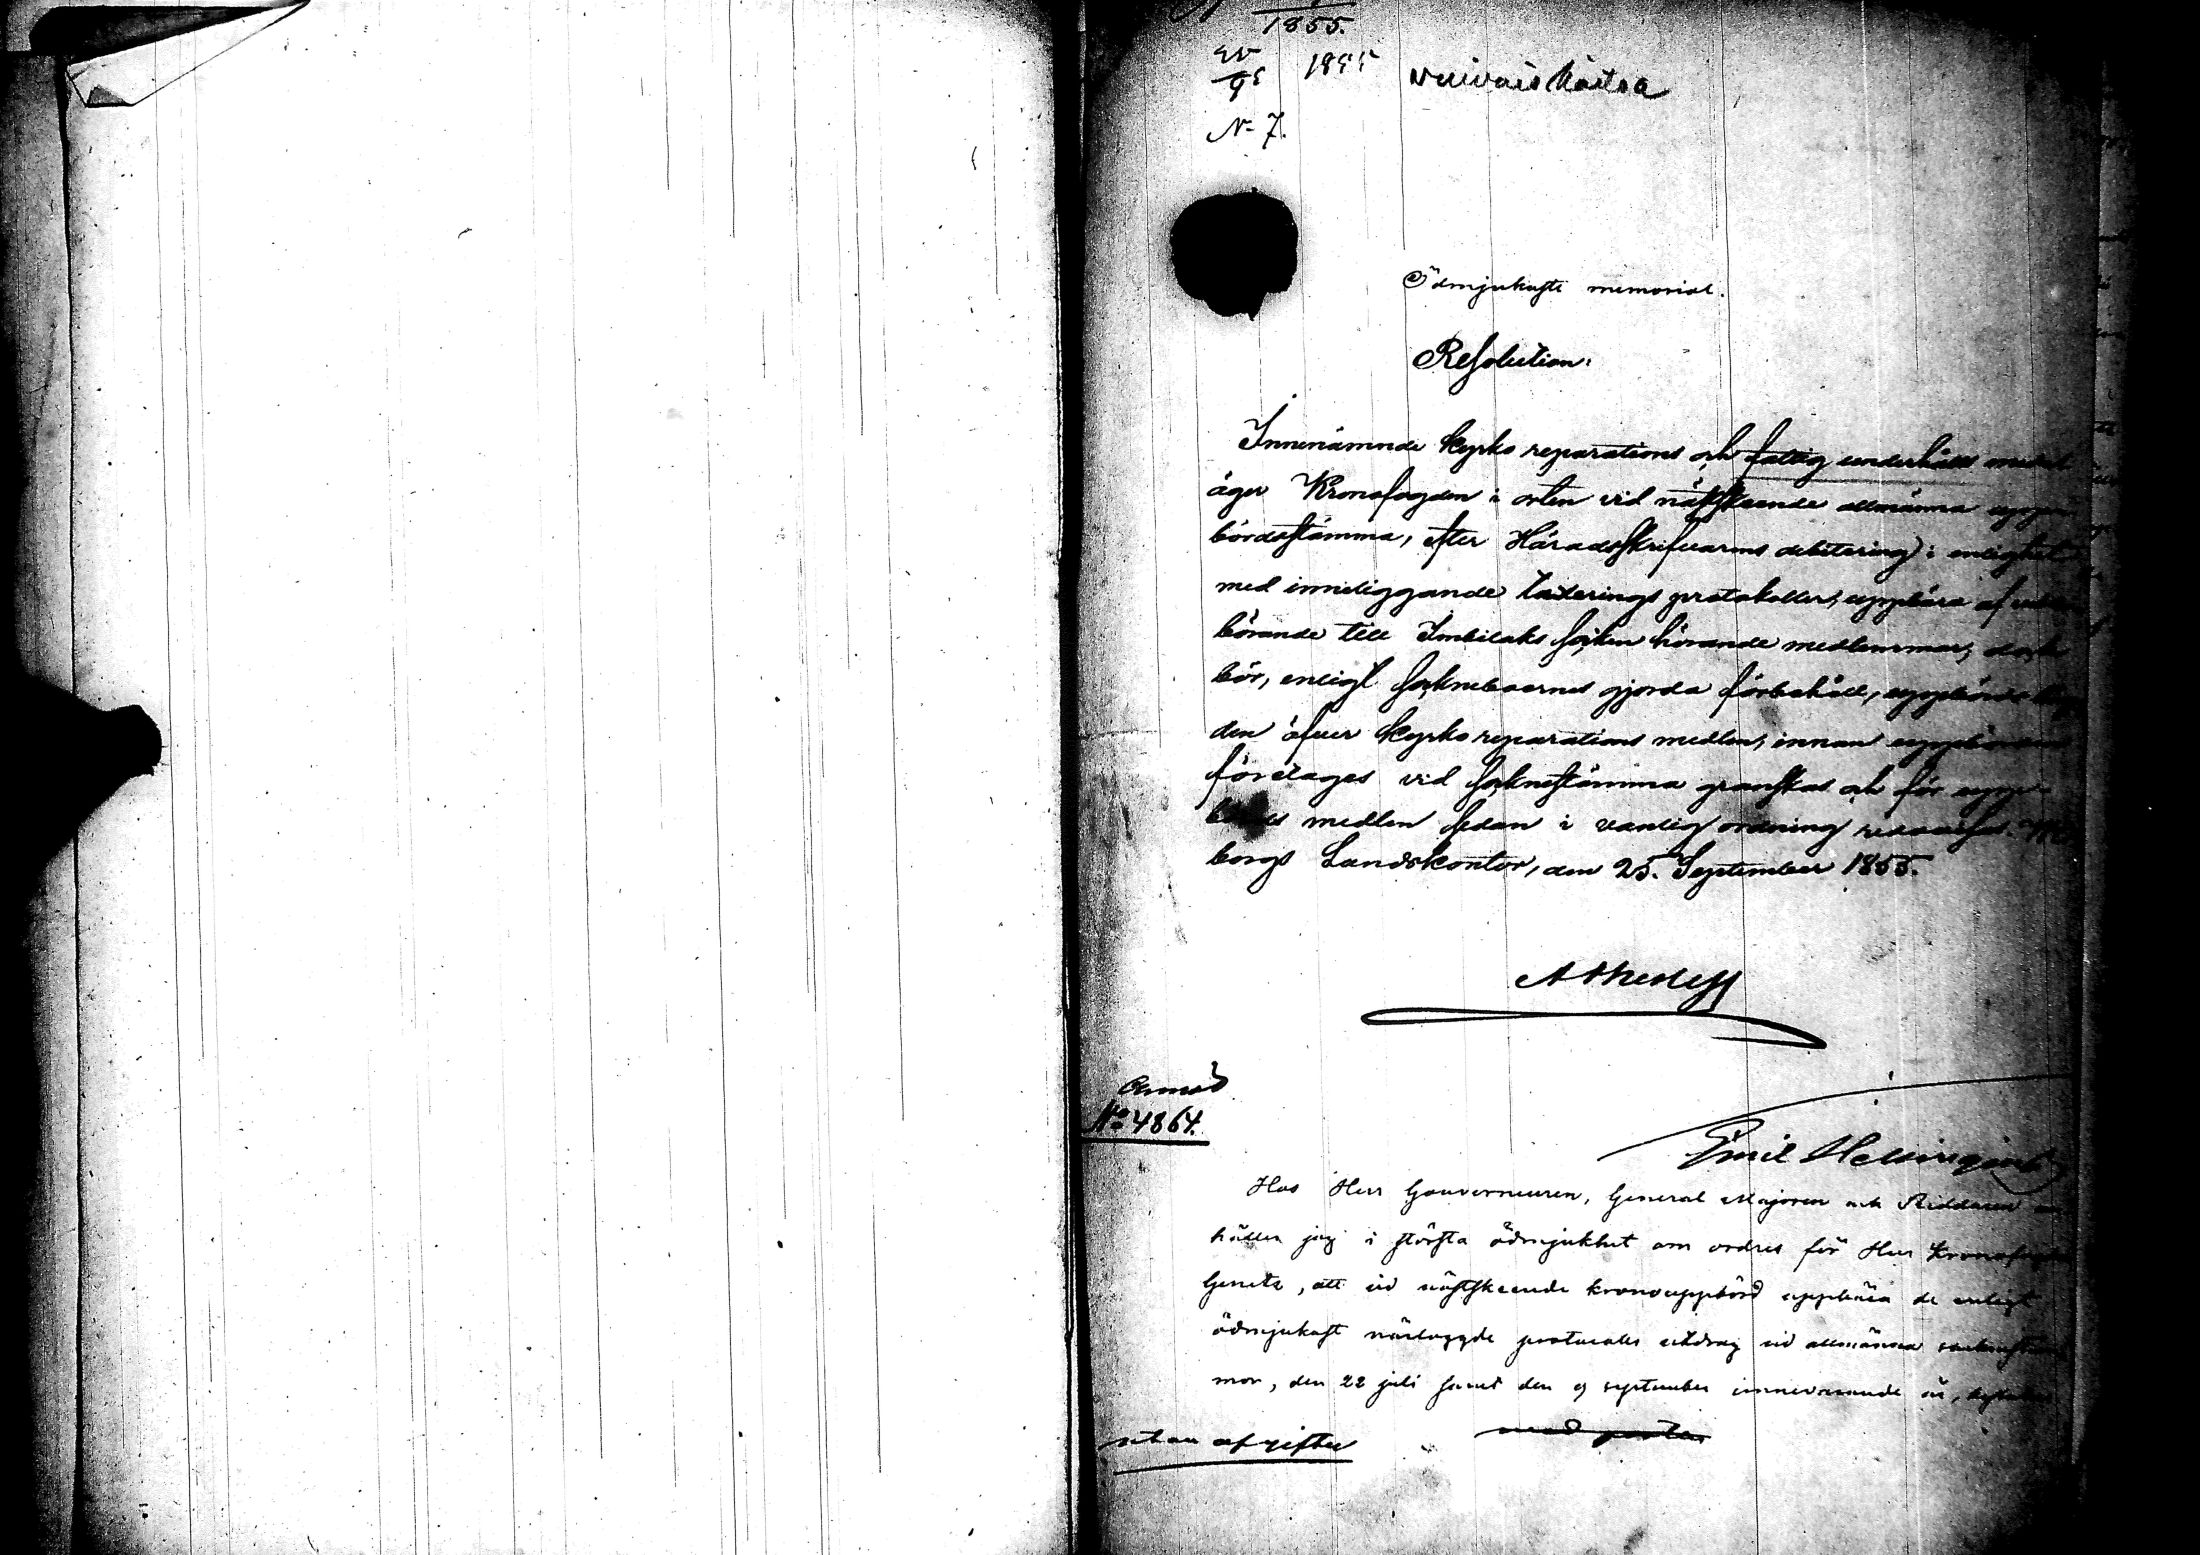 1855.
1855 vaivais hoitoa
N. 7.
Ödmjukaste memorial.
Resolution:
Innenämnde Kyrko reparations och fattig underhålls medel
äger Kronofogden i orten vid nästskeende allmänna upp
bördsstämma, efter Häradsskrifvarens debitering i enlighet
med inneliggande taxerings protokoller, uppbära af veder
börande till Imbilaks socken hörande medlemmar, dock
bör, enligt sockneboernes gjorda förbehåll, uppbörds
den öfver Kyrko reparations medlen, innan uppbörden
företages vid socknestämma granskas och för upp
medlen sedan i vanlig ordning redovisas.
borgs Landskontor, den 25. September 1855.
No 4864.
Emil
Hos Herr Gouverneuren, General Majoren och Riddaren an
håller jag i största ödmjukhet om ordres för Herr Kronofogden
Genetz, att vid nästskeende kronouppbörd uppbära de enligt
ödmjukast närlaggde protocolls utdrag vid allmänna sockenstäm
mor, den 22 juli samt den 9 september innevarande år,
utan afgifter med posten